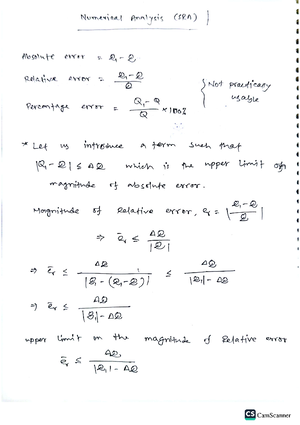 Numerical Analysis (SRA)
Absolute error = Q₁ - Q
Relative error = (Q₁ - Q)/Q
Percentage error = (Q₁ - Q)/Q × 100%
Not practically usable
* Let us introduce a term such that
|Q₁ - Q| ≤ ΔQ which is the upper limit of
magnitude of absolute error.
Magnitude of Relative error, eᵣ = |(Q₁ - Q)/Q|
⇒ ēᵣ ≤ ΔQ/|Q|
⇒ ēᵣ ≤ ΔQ/|Q₁ - (Q₁ - Q)| ≤ ΔQ/(|Q₁| - ΔQ)
⇒ ēᵣ ≤ ΔQ/(|Q₁| - ΔQ)
upper limit on the magnitude of Relative error
ēᵣ ≤ ΔQ/(|Q₁| - ΔQ)
CS CamScanner